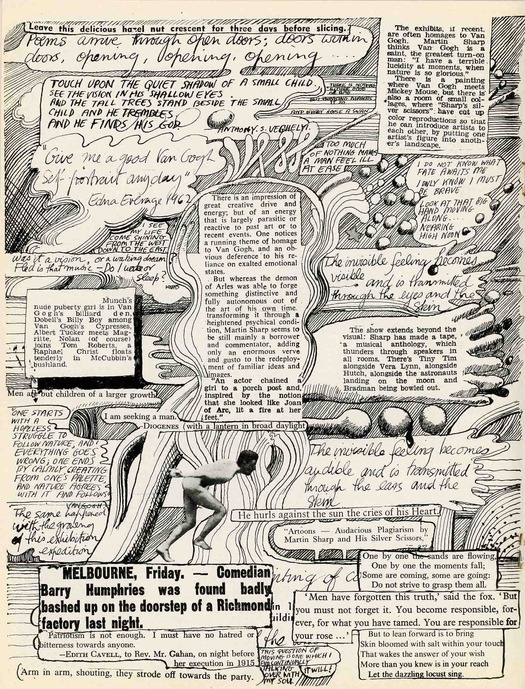 Leave this delicious hazel nut crescent for three days before slicing.
Poems arrive through open doors; doors within
doors, opening, opening, opening.....
The exhibits, if recent,
are often homages to Van
Gogh. Martin Sharp
thinks Van Gogh is a
saint, the greatest turn-on
man: "I have a terrible
lucidity at moments, when
nature is so glorious."
There is a painting
where Van Gogh meets
Mickey Mouse, but there is
a series of small col-
lages, where "Sharp's sil-
ver scissors" have cut up
color reproductions so that
he can introduce artists to
each other, by putting one
artist's figure into anoth-
er's landscape.
TOUCH UPON THE QUIET SHADOW OF A SMALL CHILD
SEE THE VISION IN HIS SWALLOW EYES
AND THE TALL TREES STAND BESIDE THE SMALL
CHILD AND HE TREMBLES
AND HE FINDS HIS GOD.
ANTHONY. S. VEGHELYI.
TOO MUCH
OF NOTHING MAKES
A MAN FEEL ILL
AT EASE
"Give me a good Van Gogh
self portrait any day"
Edna Everage 1962
I DO NOT KNOW WHAT
FATE AWAITS ME
I ONLY KNOW I MUST
BE BRAVE
LOOK AT THAT BIG
HAND MOVING
ALONG.
NEARING
HIGH NOON
I SEE
MY LIFE
COME SHINING
FROM THE WEST
DOWN TO THE EAST
Was it a vision, or a waking dream?
Fled is that music - Do I wake or
sleep?
There is an impression of
great creative drive and
energy; but of an energy
that is largely parasitic or
reactive to past art or to
recent events. One notices
a running theme of homage
to Van Gogh, and an ob-
vious deference to his re-
liance on exalted emotional
states.
But whereas the demon
of Arles was able to forge
something distinctive and
fully autonomous out of
the art of his own time,
transforming it through a
heightened psychical condi-
tion, Martin Sharp seems to
be still mainly a borrower
and commentator, adding
only an enormous verve
and gusto to the redeploy-
ment of familiar ideas and
images.
"An actor chained a
girl to a porch post and,
inspired by the notion
that she looked like Joan
of Arc, lit a fire at her
feet."
The invisible feeling becomes
visible and is transmitted
through the eyes and the
skin
Munch's
nude puberty girl is in Van
Gogh's billiard den,
Dobell's Billy Boy among
Van Gogh's Cypresses,
Albert Tucker meets Mag-
ritte, Nolan (of course)
joins Tom Roberts, a
Raphael Christ floats
tenderly in McCubbin's
bushland.
The show extends beyond the
visual: Sharp has made a tape,
'a musical anthology, which
thunders through speakers in
all rooms. There's Tiny Tim
alongside Vera Lynn, alongside
Hutch, alongside the astronauts
landing on the moon and
Bradman being bowled out.
Men are but children of a larger growth,
I am seeking a man.
—DIOGENES (with a lantern in broad daylight
ONE STARTS
WITH A
HOPELESS
STRUGGLE TO
FOLLOW NATURE, AND
EVERYTHING GOES
WRONG; ONE ENDS
BY CALMLY CREATING
FROM ONE'S PALETTE,
AND NATURE AGREES
WITH IT AND FOLLOWS
VAN GOGH
The same happened
with the grating
of this exhibition
expedition
The invisible feeling becomes
audible and is transmitted
through the ears and the
skin
He hurls against the sun the cries of his Heart.
"Artoons — Audacious Plagiarism by
Martin Sharp and His Silver Scissors,"
One by one the sands are flowing,
One by one the moments fall;
Some are coming, some are going:
Do not strive to grasp them all.
MELBOURNE, Friday. — Comedian
Barry Humphries was found badly
bashed up on the doorstep of a Richmond
factory last night.
'Men have forgotten this truth,' said the fox. 'But
you must not forget it. You become responsible, for-
ever, for what you have tamed. You are responsible for
your rose ...'
Patriotism is not enough. I must have no hatred or
bitterness towards anyone.
—EDITH CAVELL, to Rev. Mr. Gahan, on night before
her execution in 1915
Arm in arm, shouting, they strode off towards the party.
THIS QUESTION OF
MOVING IS ONE WHICH I
AM CONTINUALLY
TALKING
OVER WITH
MY SOUL
I WILL!
But to lean forward is to bring
Skin bloomed with salt within your touch
That wakes the answer of your wish
More than you knew is in your reach
Let the dazzling locust sing.